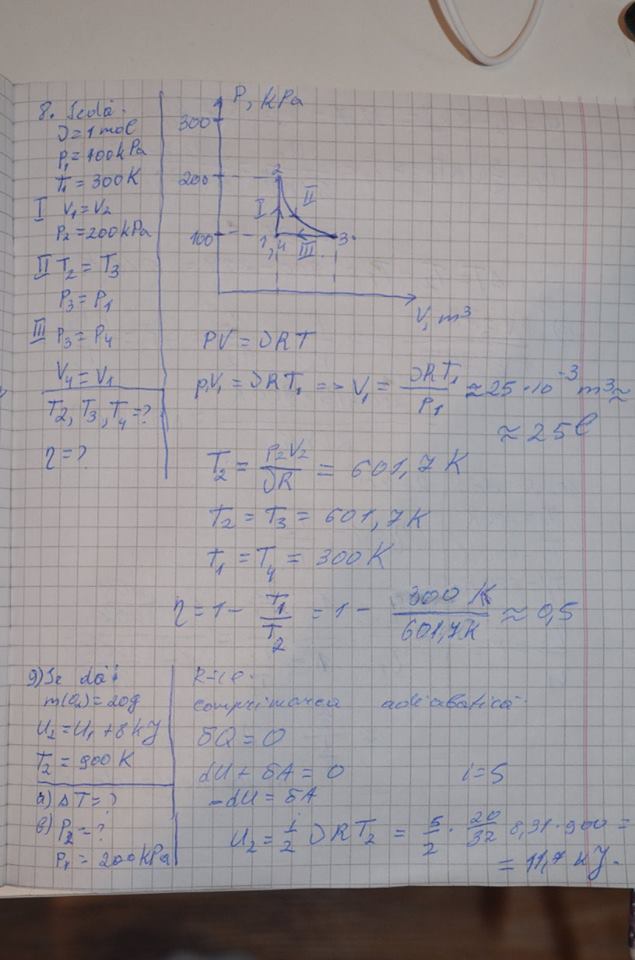 8. Se dă:
ν = 1 mol
P₁ = 100 kPa
T₁ = 300 K
I V₁ = V₂
P₂ = 200 kPa
II T₂ = T₃
P₃ = P₁
III P₃ = P₄
V₄ = V₁
T₂, T₃, T₄ = ?
η = ?
P, kPa
300
200
100
2
I II
1,4 III 3
V, m³
PV = νRT
p₁V₁ = νRT₁ => V₁ = νRT₁/P₁ ≈ 25 · 10⁻³ m³ ≈
≈ 25 l
T₂ = P₂V₂/νR = 601,7 K
T₂ = T₃ = 601,7 K
T₁ = T₄ = 300 K
η = 1 - T₁/T₂ = 1 - 300 K/601,7 K ≈ 0,5
9) Se dă:
m(O₂) = 20g
U₂ = U₁ + 8 kJ
T₂ = 900 K
a) ΔT = ?
b) P₂ = ?
P₁ = 200 kPa
R-re.
comprimarea adiabatică.
δQ = 0
dU + δA = 0 i = 5
-dU = δA
U₂ = i/2 νRT₂ = 5/2 · 20/32 8,31 · 900 =
= 11,7 kJ.